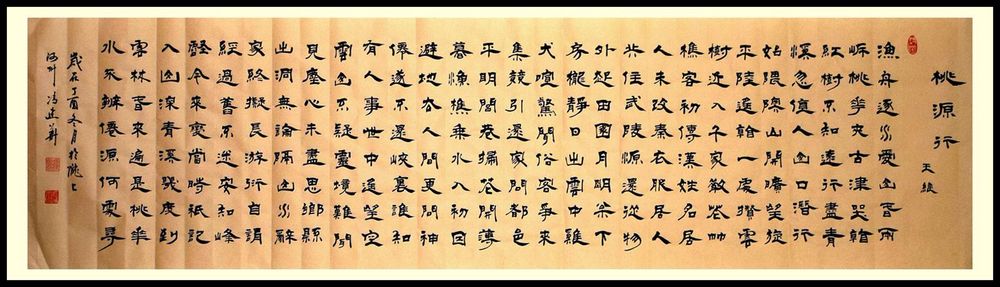 桃源行
王維
漁舟逐水愛山春兩
岸桃花夾古津坐看
紅樹不知遠行盡青
溪忽值人山口潛行
始隈隩山開曠望旋
平陸遙看一處攢雲
樹近入千家散花竹
樵客初傳漢姓名居
人未改秦衣服居人
共住武陵源還從物
外起田園月明松下
房櫳靜日出雲中雞
犬喧驚聞俗客爭來
集競引還家問都邑
平明閭巷掃花開薄
暮漁樵乘水入初因
避地去人間更問神
僊遂不還峽裏誰知
有人事世中遙望空
雲山不疑靈境難聞
見塵心未盡思鄉縣
出洞無論隔山水辭
家終擬長游衍自謂
經過舊不迷安知峰
壑今來變當時祇記
入山深青溪幾度到
雲林春來遍是桃花
水不辨僊源何處尋
歲在丁酉冬月於隴上
河州馮建華